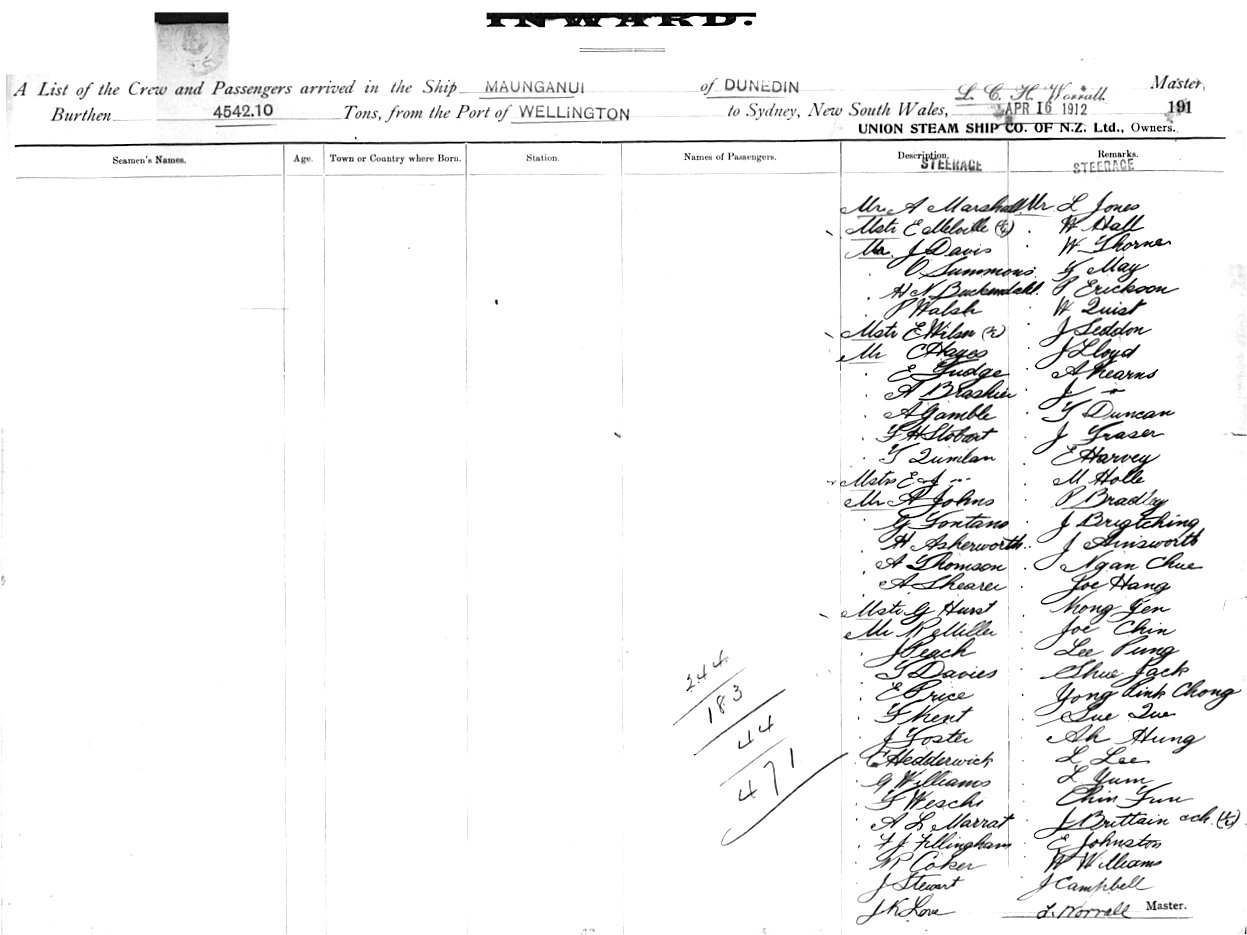 INWARD.
A List of the Crew and Passengers arrived in the Ship MAUNGANUI of DUNEDIN L. C. H. Worrall Master,
Burthen 4542.10 Tons, from the Port of WELLINGTON to Sydney, New South Wales, APR 16 1912 191
UNION STEAM SHIP CO. OF N.Z. Ltd., Owners.
Seamen's Names. Age. Town or Country where Born. Station. Names of Passengers. Description. Remarks.
STEERAGE STEERAGE
Mr A Marshall Mr L Jones
Mstr E Melville (½) W Hall
Mr. J Davis W Thorne
O Summons G May
H N Buckendahl. P Erickson
P Walsh W Quist
Mstr E Wilson (½) J Seddon
Mr C Hayes J Lloyd
E Judge A Kearns
A Brashier J "
A Gamble T Duncan
F H Stobart J Fraser
T Quinlan E Harvey
Mstrs E & J " M Holle
Mr A Johns P Bradley
G Fontano J Brigtching
H Asherworth J Ainsworth
A Thomson Ngan Chue
A Shearer Joe Hang
Mstr G Hurst Kong Yen
Mr R Miller Joe Chin
J Peach Lee Pung
T Davies Shue Jack
E Price Yong Pink Chong
F Kent Sue Que
J Foster Ah Hung
E Hedderwick L Lee
G Williams L Yum
F Weschi Chin Fun
A L Marrat J Brittain & ch. (½)
F J Fillingham E Johnston
R Coker W Williams
J Stewart J Campbell
J K Love L. Worrall Master.
244
183
44
471